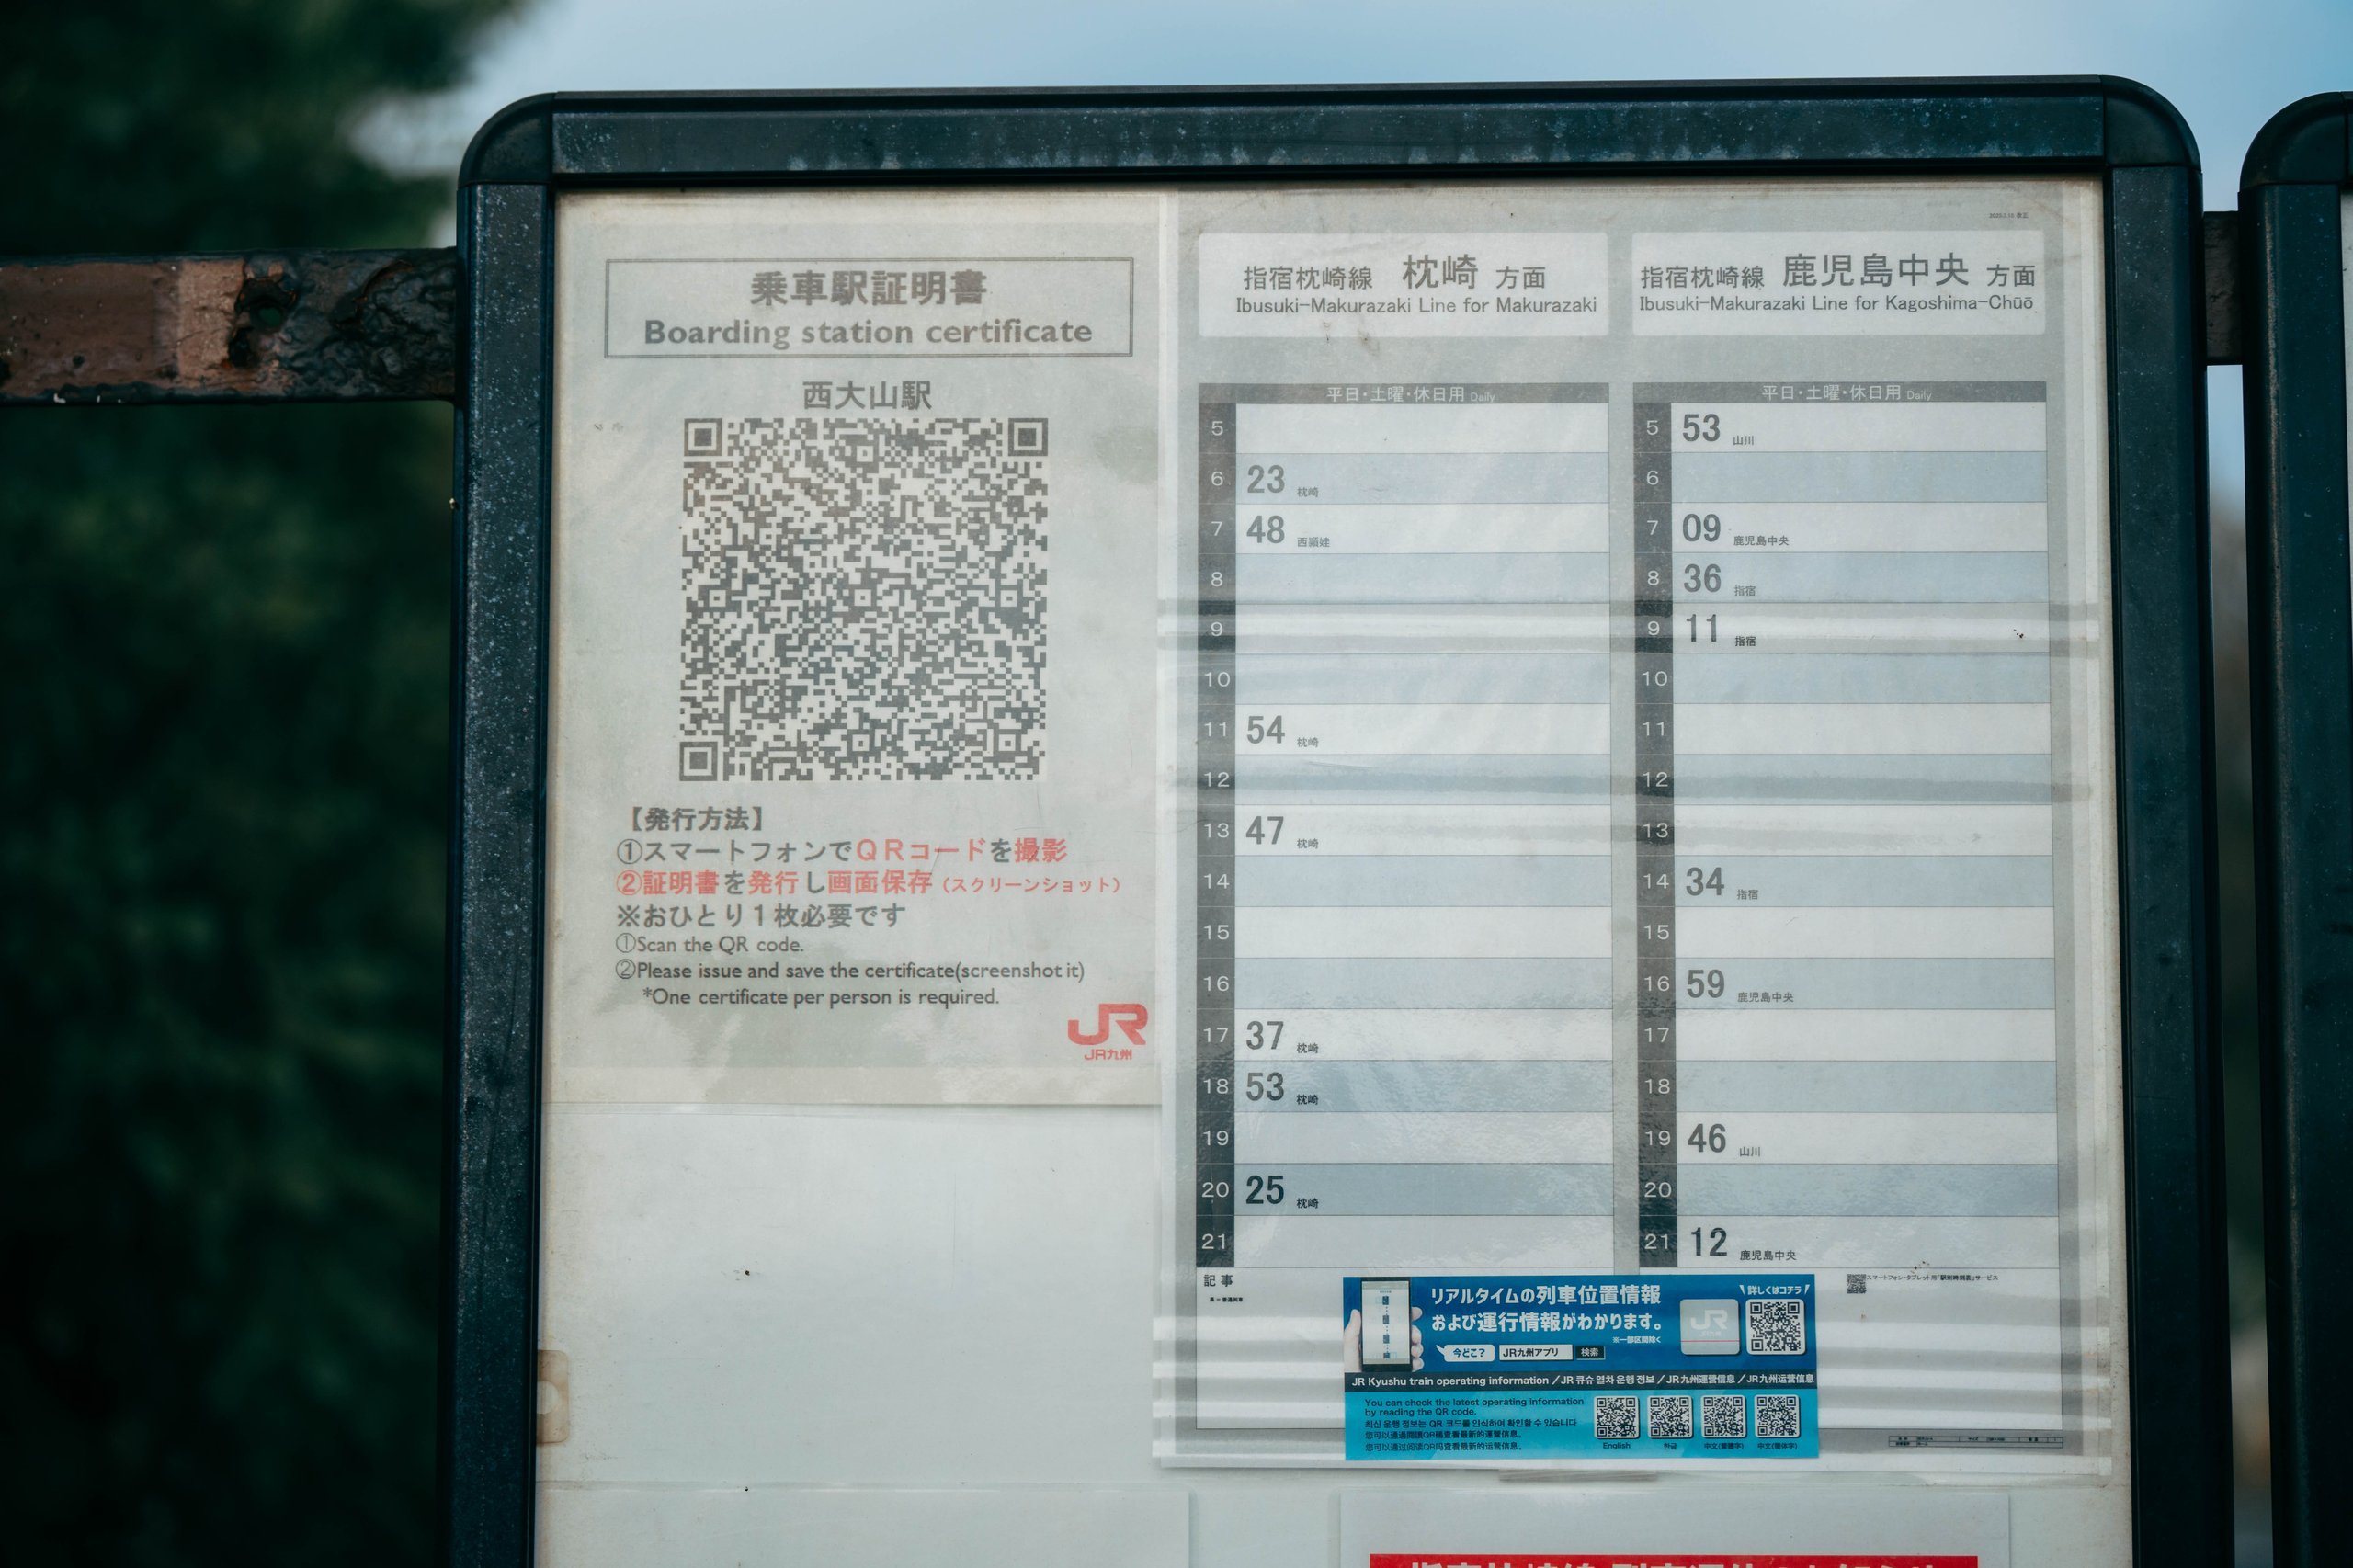 乗車駅証明書
Boarding station certificate
西大山駅
【発行方法】
①スマートフォンでQRコードを撮影
②証明書を発行し画面保存（スクリーンショット）
※おひとり1枚必要です
①Scan the QR code.
②Please issue and save the certificate(screenshot it)
*One certificate per person is required.
JR
JR九州
指宿枕崎線 枕崎 方面
Ibusuki-Makurazaki Line for Makurazaki
平日・土曜・休日用 Daily
5
6 23 枕崎
7 48 西頴娃
8
9
10
11 54 枕崎
12
13 47 枕崎
14
15
16
17 37 枕崎
18 53 枕崎
19
20 25 枕崎
21
指宿枕崎線 鹿児島中央 方面
Ibusuki-Makurazaki Line for Kagoshima-Chūō
平日・土曜・休日用 Daily
5 53 山川
6
7 09 鹿児島中央
8 36 指宿
9 11 指宿
10
11
12
13
14 34 指宿
15
16 59 鹿児島中央
17
18
19 46 山川
20
21 12 鹿児島中央
記事
スマートフォン・タブレット用「駅別時刻表」サービス
リアルタイムの列車位置情報
および運行情報がわかります。
※一部区間除く
詳しくはコチラ
JR
今どこ? JR九州アプリ 検索
JR Kyushu train operating information／JR 큐슈 열차 운행 정보／JR九州運營信息／JR九州运营信息
You can check the latest operating information
by reading the QR code.
최신 운행 정보는 QR 코드를 인식하여 확인할 수 있습니다
您可以通過閱讀QR碼查看最新的運營信息。
您可以通过阅读QR码查看最新的运营信息。
English 한글 中文(繁體字) 中文(简体字)